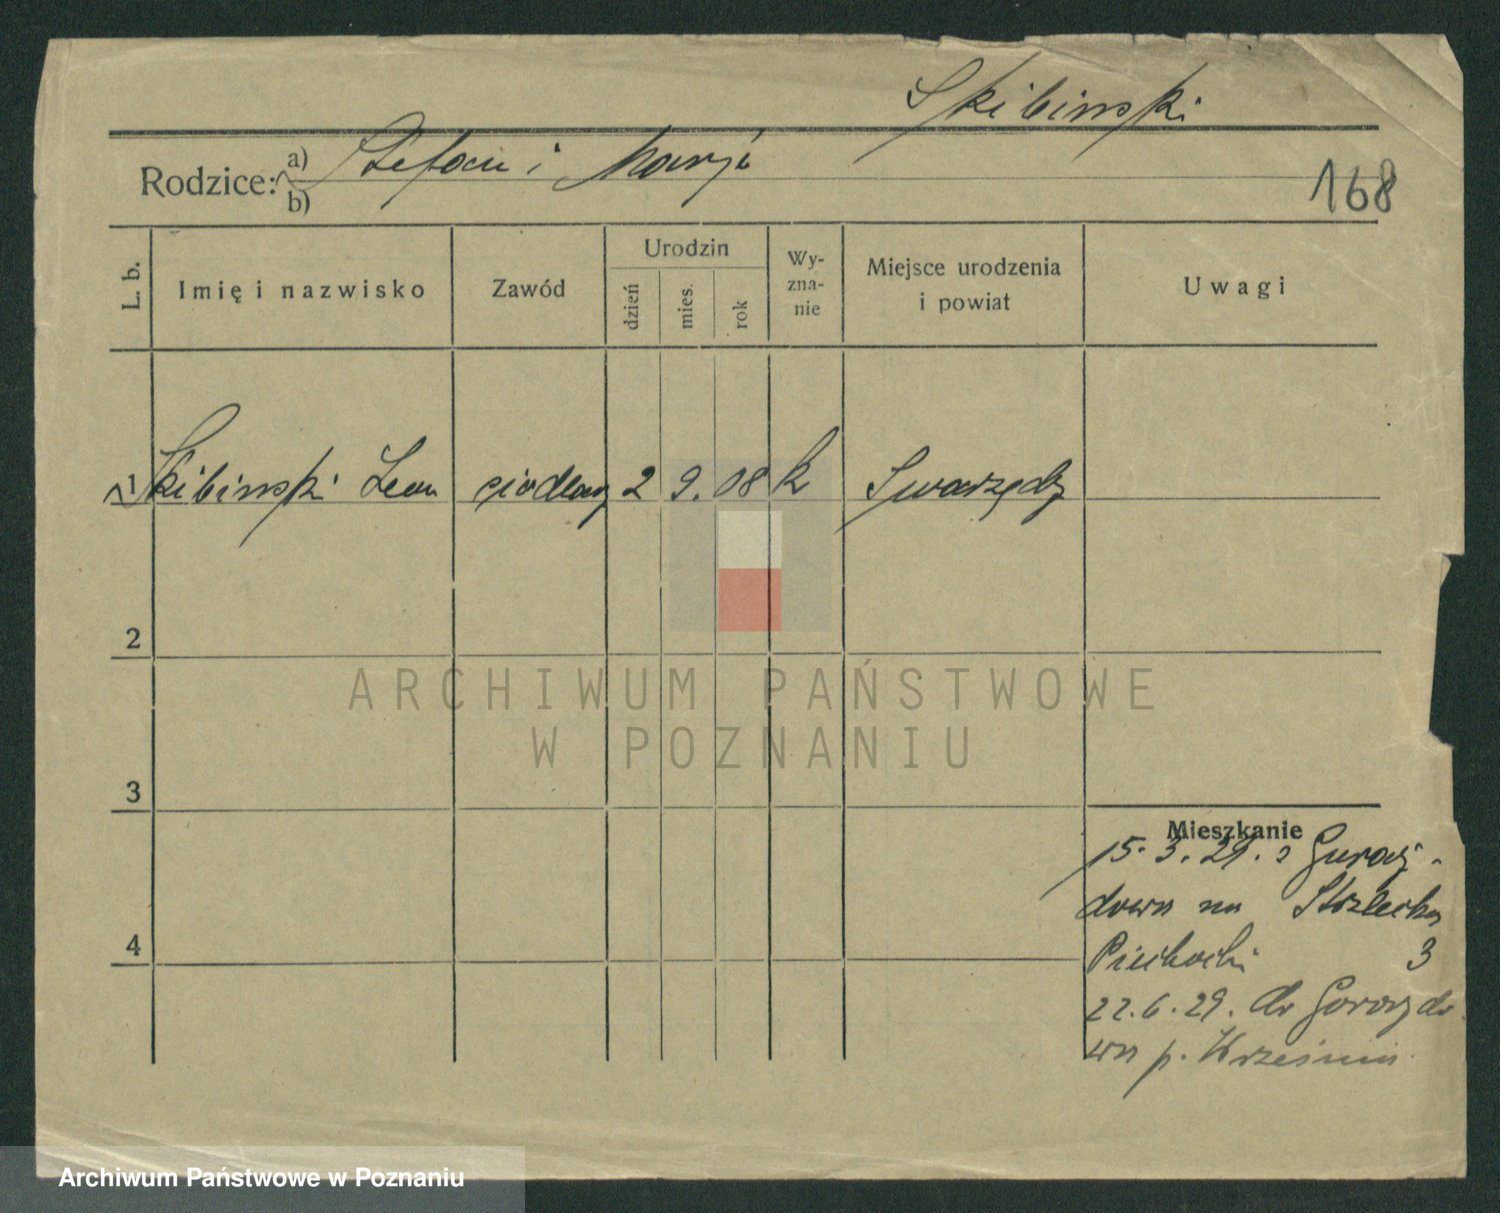 Skibinski
Rodzice: a) Stefan i Marja
b)
168
L. b.
Imię i nazwisko
Zawód
Urodzin
dzień
mies.
rok
Wy-
zna-
nie
Miejsce urodzenia
i powiat
Uwagi
1 Skibinski Leon siodlarz 2 9. 08 k Swarzędz
2
3
4
Mieszkanie
15. 3. 29. z Gorazdowa
na Strzelecka
Piechocki 3
22. 6. 29. do Gorazdo
wa p. Września
ARCHIWUM PAŃSTWOWE
W POZNANIU
Archiwum Państwowe w Poznaniu